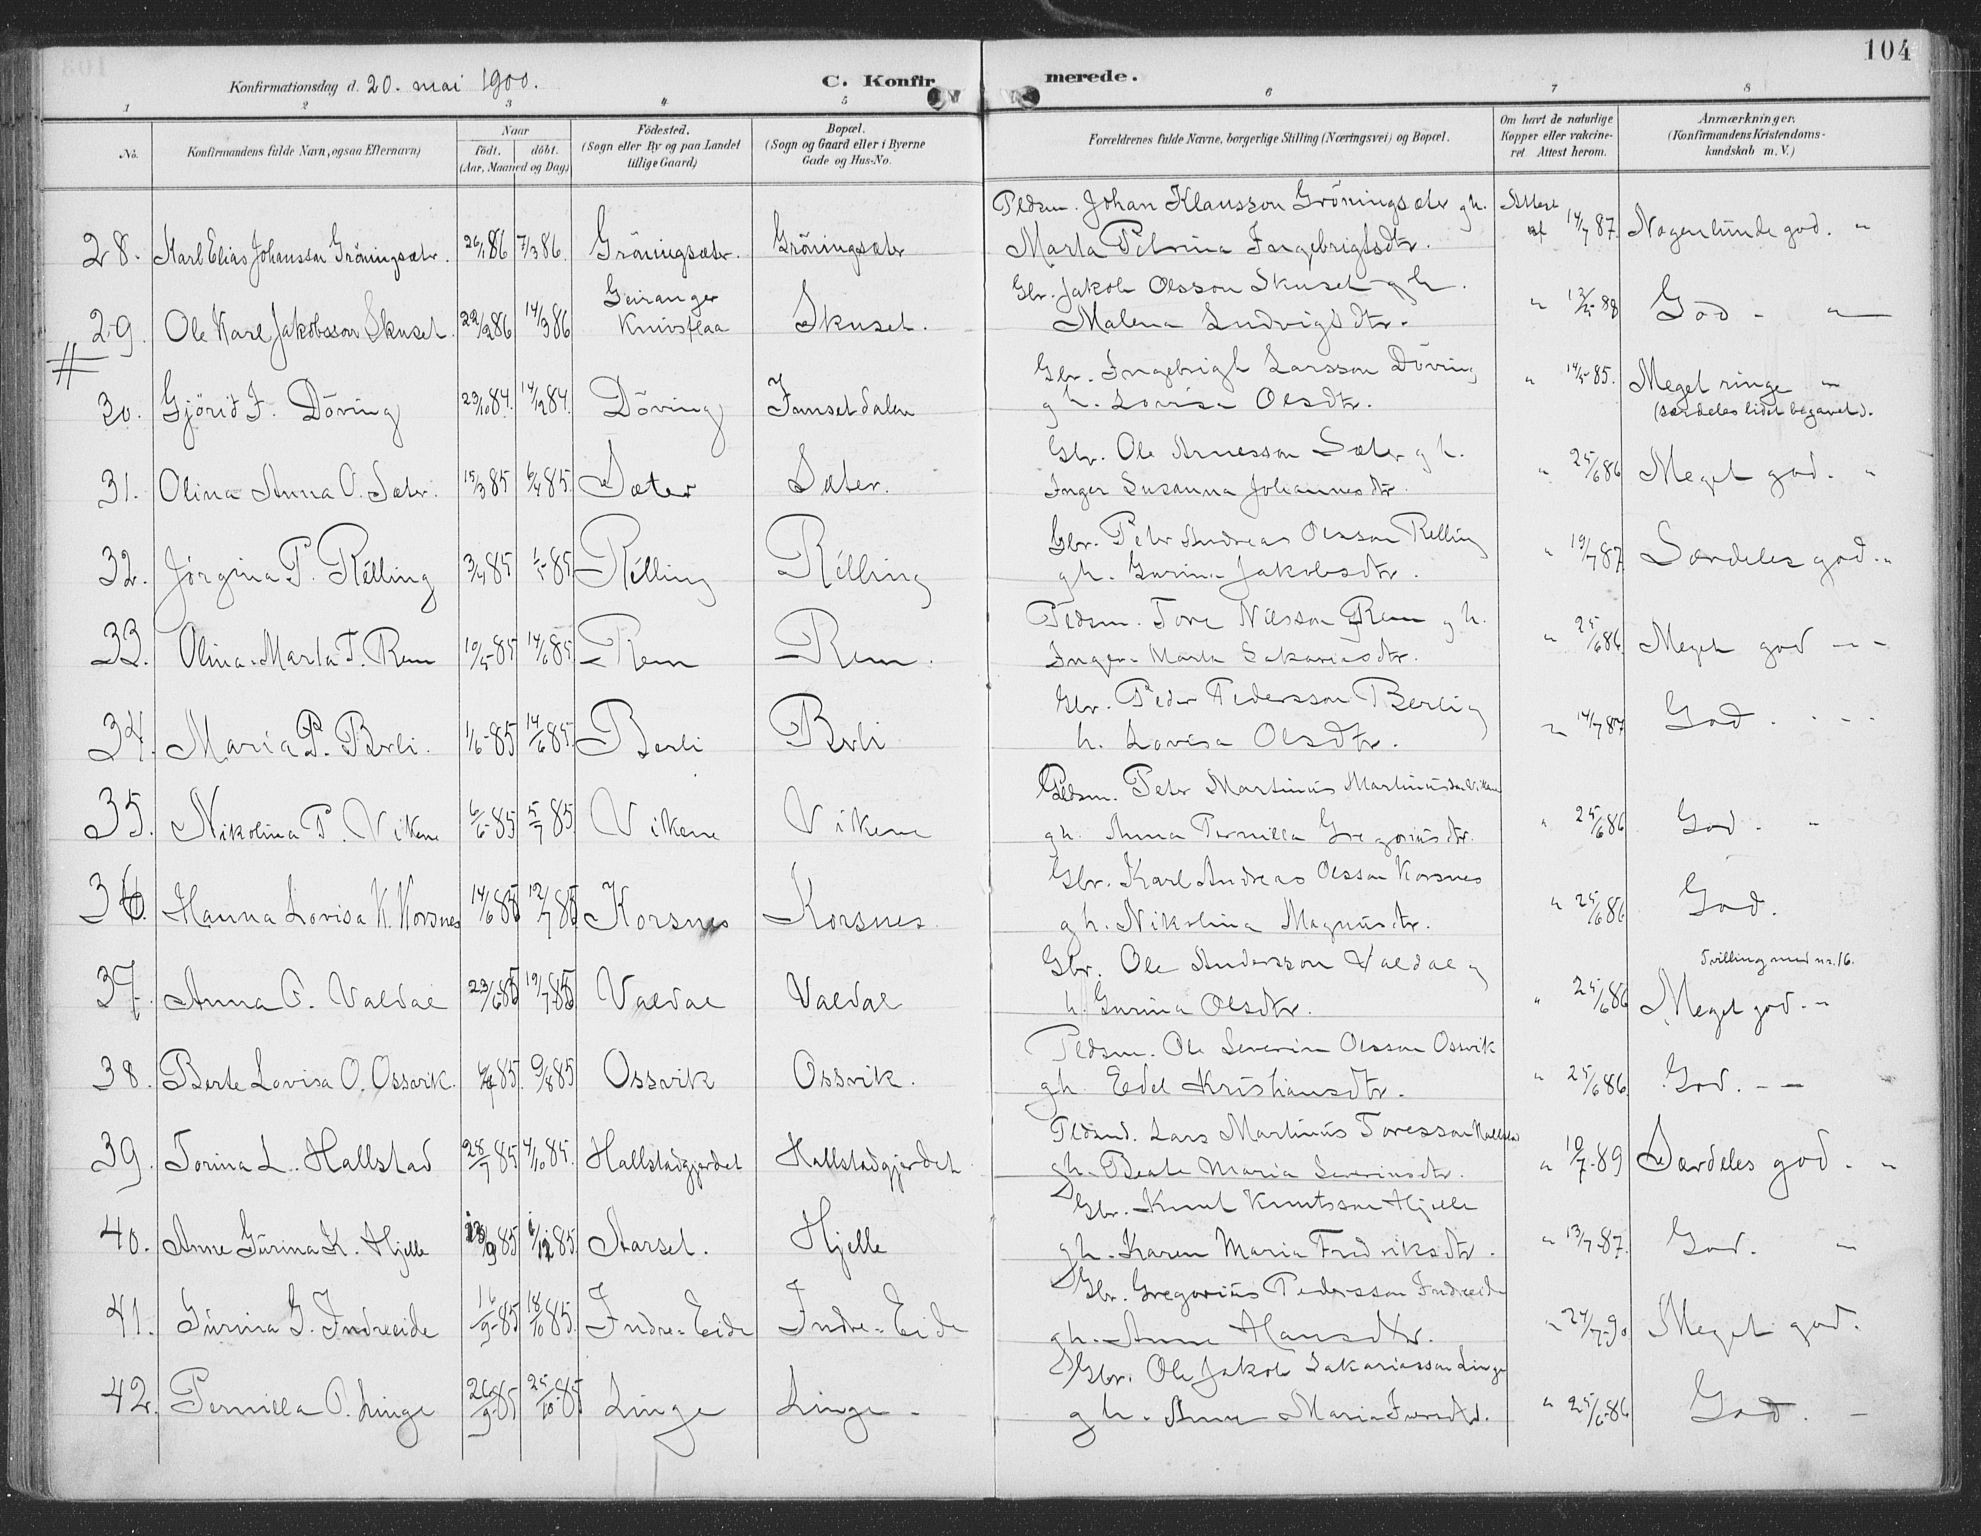 104
Konfirmationsdag d. 20. mai 1900. C. Konfir merede.
1 2 3 4 5 6 7 8
No. Konfirmandens fulde Navn, ogsaa Efternavn) Naar födt. döbt. (Aar, Maaned og Dag) Födested. (Sogn eller By og paa Landet tillige Gaard) Bopæl. (Sogn og Gaard eller i Byerne Gade og Hus-No. Forældrenes fulde Navne, borgerlige Stilling (Næringsvei) og Bopæl. Om havt de naturlige Kopper eller vakcineret. Attest herom. Anmærkninger. (Konfirmandens Kristendomskundskab m. V.)
Pldsm. Johan Klausson Gröningsæter gh.
28. Karl Elias Johansson Gröningsæter. 26/1 86 7/3 86. Gröningsæter. Gröningsæter Marta Petrina Ingebrigtsdtr. Attest af 14/7 87. Nogenlunde god. "
Gbr. Jakob Olsson Skuset g h.
29. Ole Karl Jakobsson Skuset. 22/2 86 14/3 86 Geiranger Knivsflaa Skuset. Malena Ludvigsdtr. " God - "
#
Gbr. Ingebrigt Larsson Döving
30. Gjörid I. Döving 23/10 84. 14/12 84. Döving g h. Lovisa Olsdtr. " 14/5-85. Meget ringe "
(særdeles lidet begavet).
Gbr. Ole Arnesson Sæter g h.
31. Olina Anna O. Sæter. 15/3 85 6/4 85. Sæter Sæter. Inger Susanna Johannesdtr. " 25/6 86 Meget god. "
Gbr. Peter Andreas Olsson Relling
32. Jörgina P. Relling 3/4 85 85 Relling Relling gh. Gurina Jakobsdtr. " 19/7 87. Særdeles god. "
Pldsm. Tore Nilsson Rem g h.
33. Olina Marta T. Rem 10/5-85 14/6 85 Rem Rem. Inger Marta Sakariasdtr. " 25/6 86. Meget god - -
Gbr. Peder Pedersson Berli g
34. Maria P. Berli. 1/6-85 14/6 85. Berli Berli h. Lovisa Olsdtr. " 14/7 87 God. - - -
Pldsm. Peter Martinus Martinusson Viken
35. Nikolina P. Vikene 6/6-85 5/7 85. Vikene Vikene gh. Anna Pernilla Gregoriusdtr. " 25/6 86 God. "
Gbr. Karl Andreas Olsson Korsnes
36. Hanna Lovisa K. Korsnes 14/6 85 12/7 85 Korsnes Korsnes. gh. Nikolina Magnusdtr. " 25/6 86 God.
Gbr. Ole Andersson Valdal g Tvilling med nr. 16.
37. Anna O. Valdal 23/6 85 19/7 85 Valdal Valdal h. Gurina Olsdtr. " 25/6 86 Meget god. "
Pldsm. Ole Severin Olsson Ossvik
38. Berte Lovisa O. Ossvik. 85. 9/8 85 Ossvik Ossvik. gh Edel Kristiansdtr. " 25/6 86. God. - -
Pldsm. Lars Martinus Toresson Hallstad
39. Torina L. Hallstad 28/7 85 4/10 85. Hallstadgjerdet Hallstadgjerdet gh. Beate Maria Severinsdtr. " 10/7-89 Særdeles god. "
Gbr. Knut Knutsson Hjelle
40. Anne Gurina K. Hjelle 85 85. Aarset. Hjelle gh. Karen Maria Fredriksdtr. " 13/7-87. God. "
Gbr. Gregorius Pedersson Indreeide
41. Gurina G. Indreeide 16/9-85 18/10 85. Indre-Eide Indre-Eide gh. Anne Hansdtr. " 24/7-90 Meget god.
Gbr. Ole Jakob Sakariasson Linge
42. Pernilla O. Linge 26/9-85 25/10-85 Linge Linge - g h. Anne Maria " 25/6-86 God. -